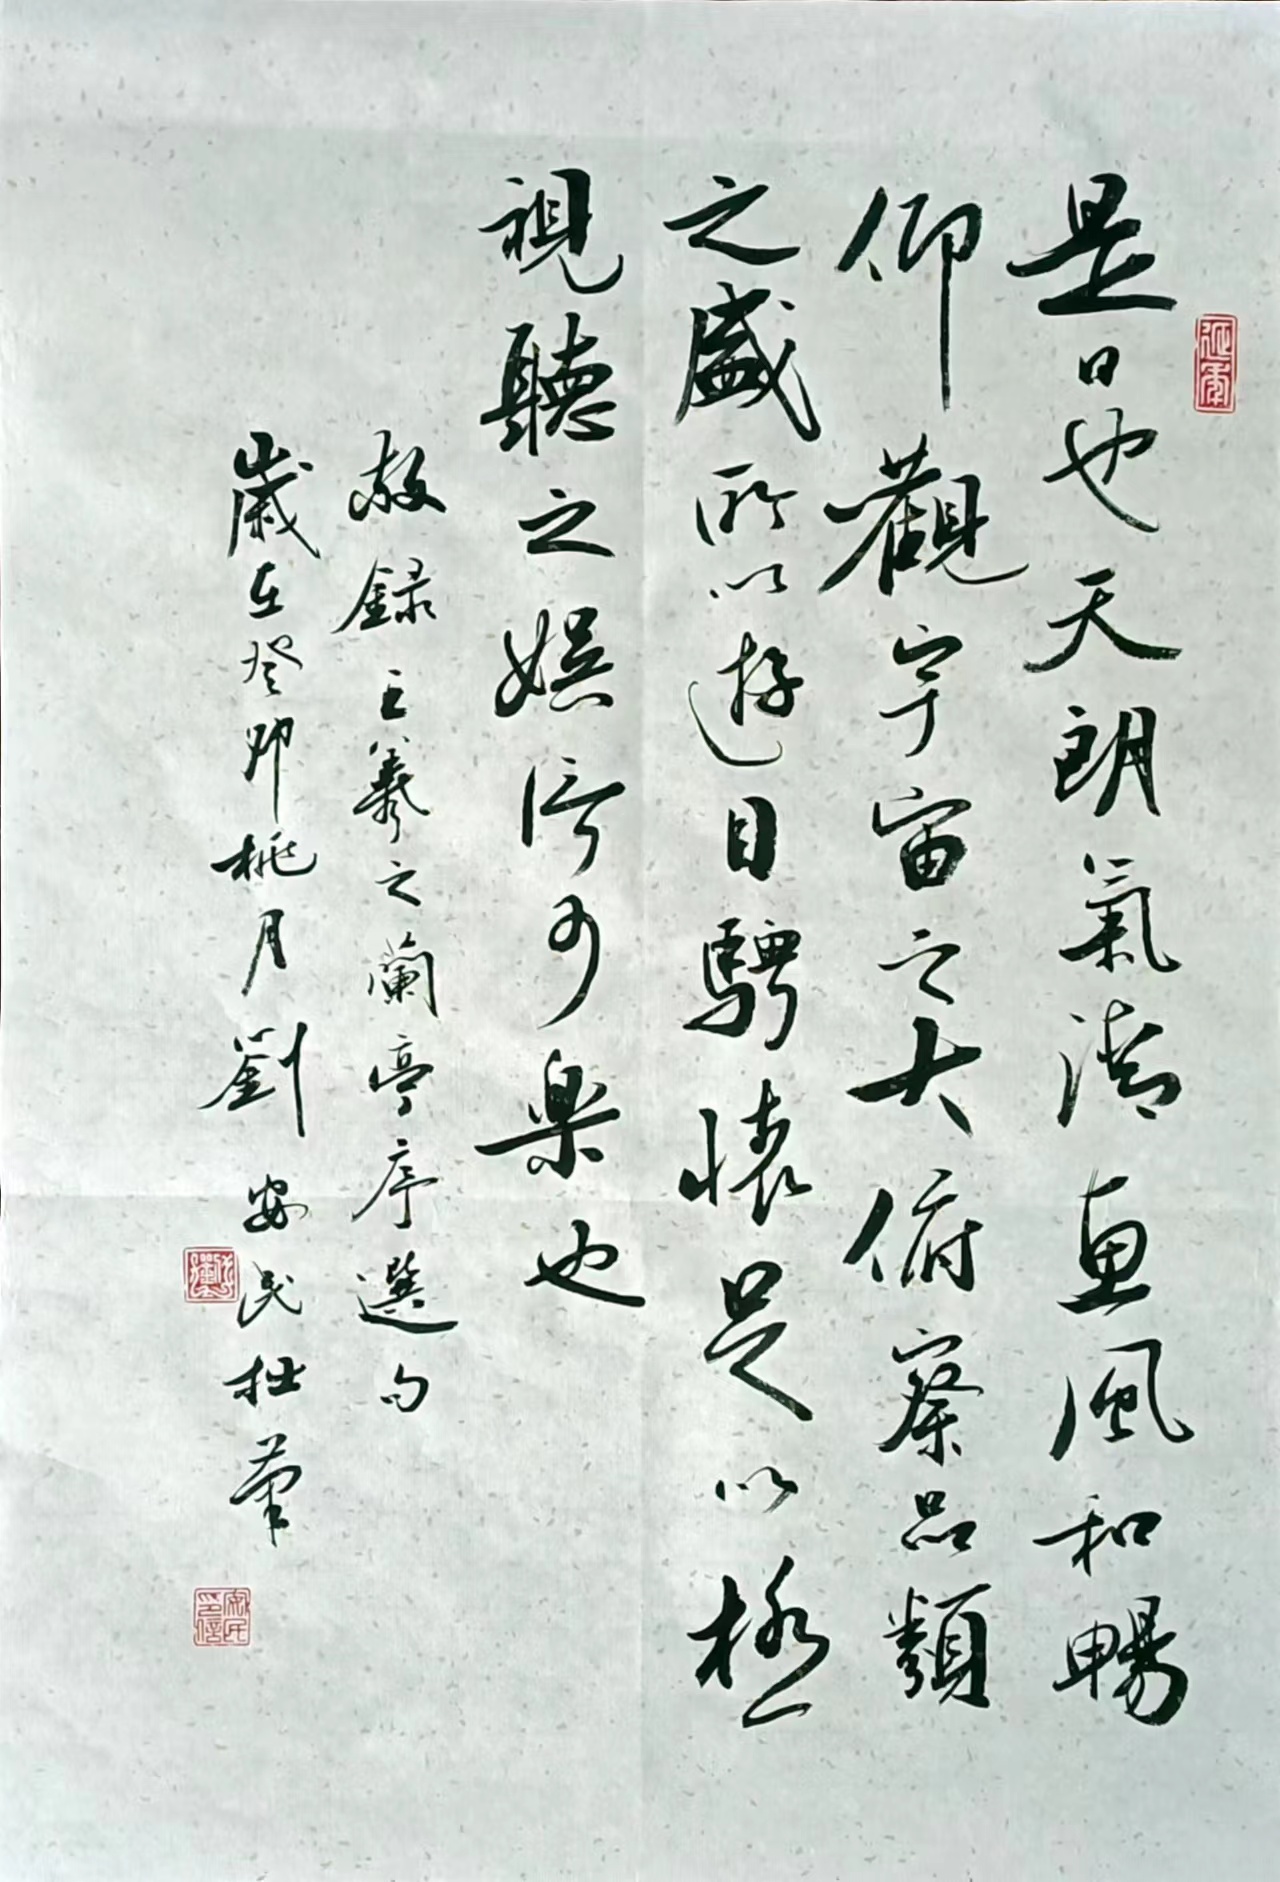 是日也天朗氣清惠風和暢
仰觀宇宙之大俯察品類
之盛所以遊目騁懷足以極
視聽之娛信可樂也
敬錄王羲之蘭亭序選句
歲在癸卯桃月劉安民拙筆
安民印信